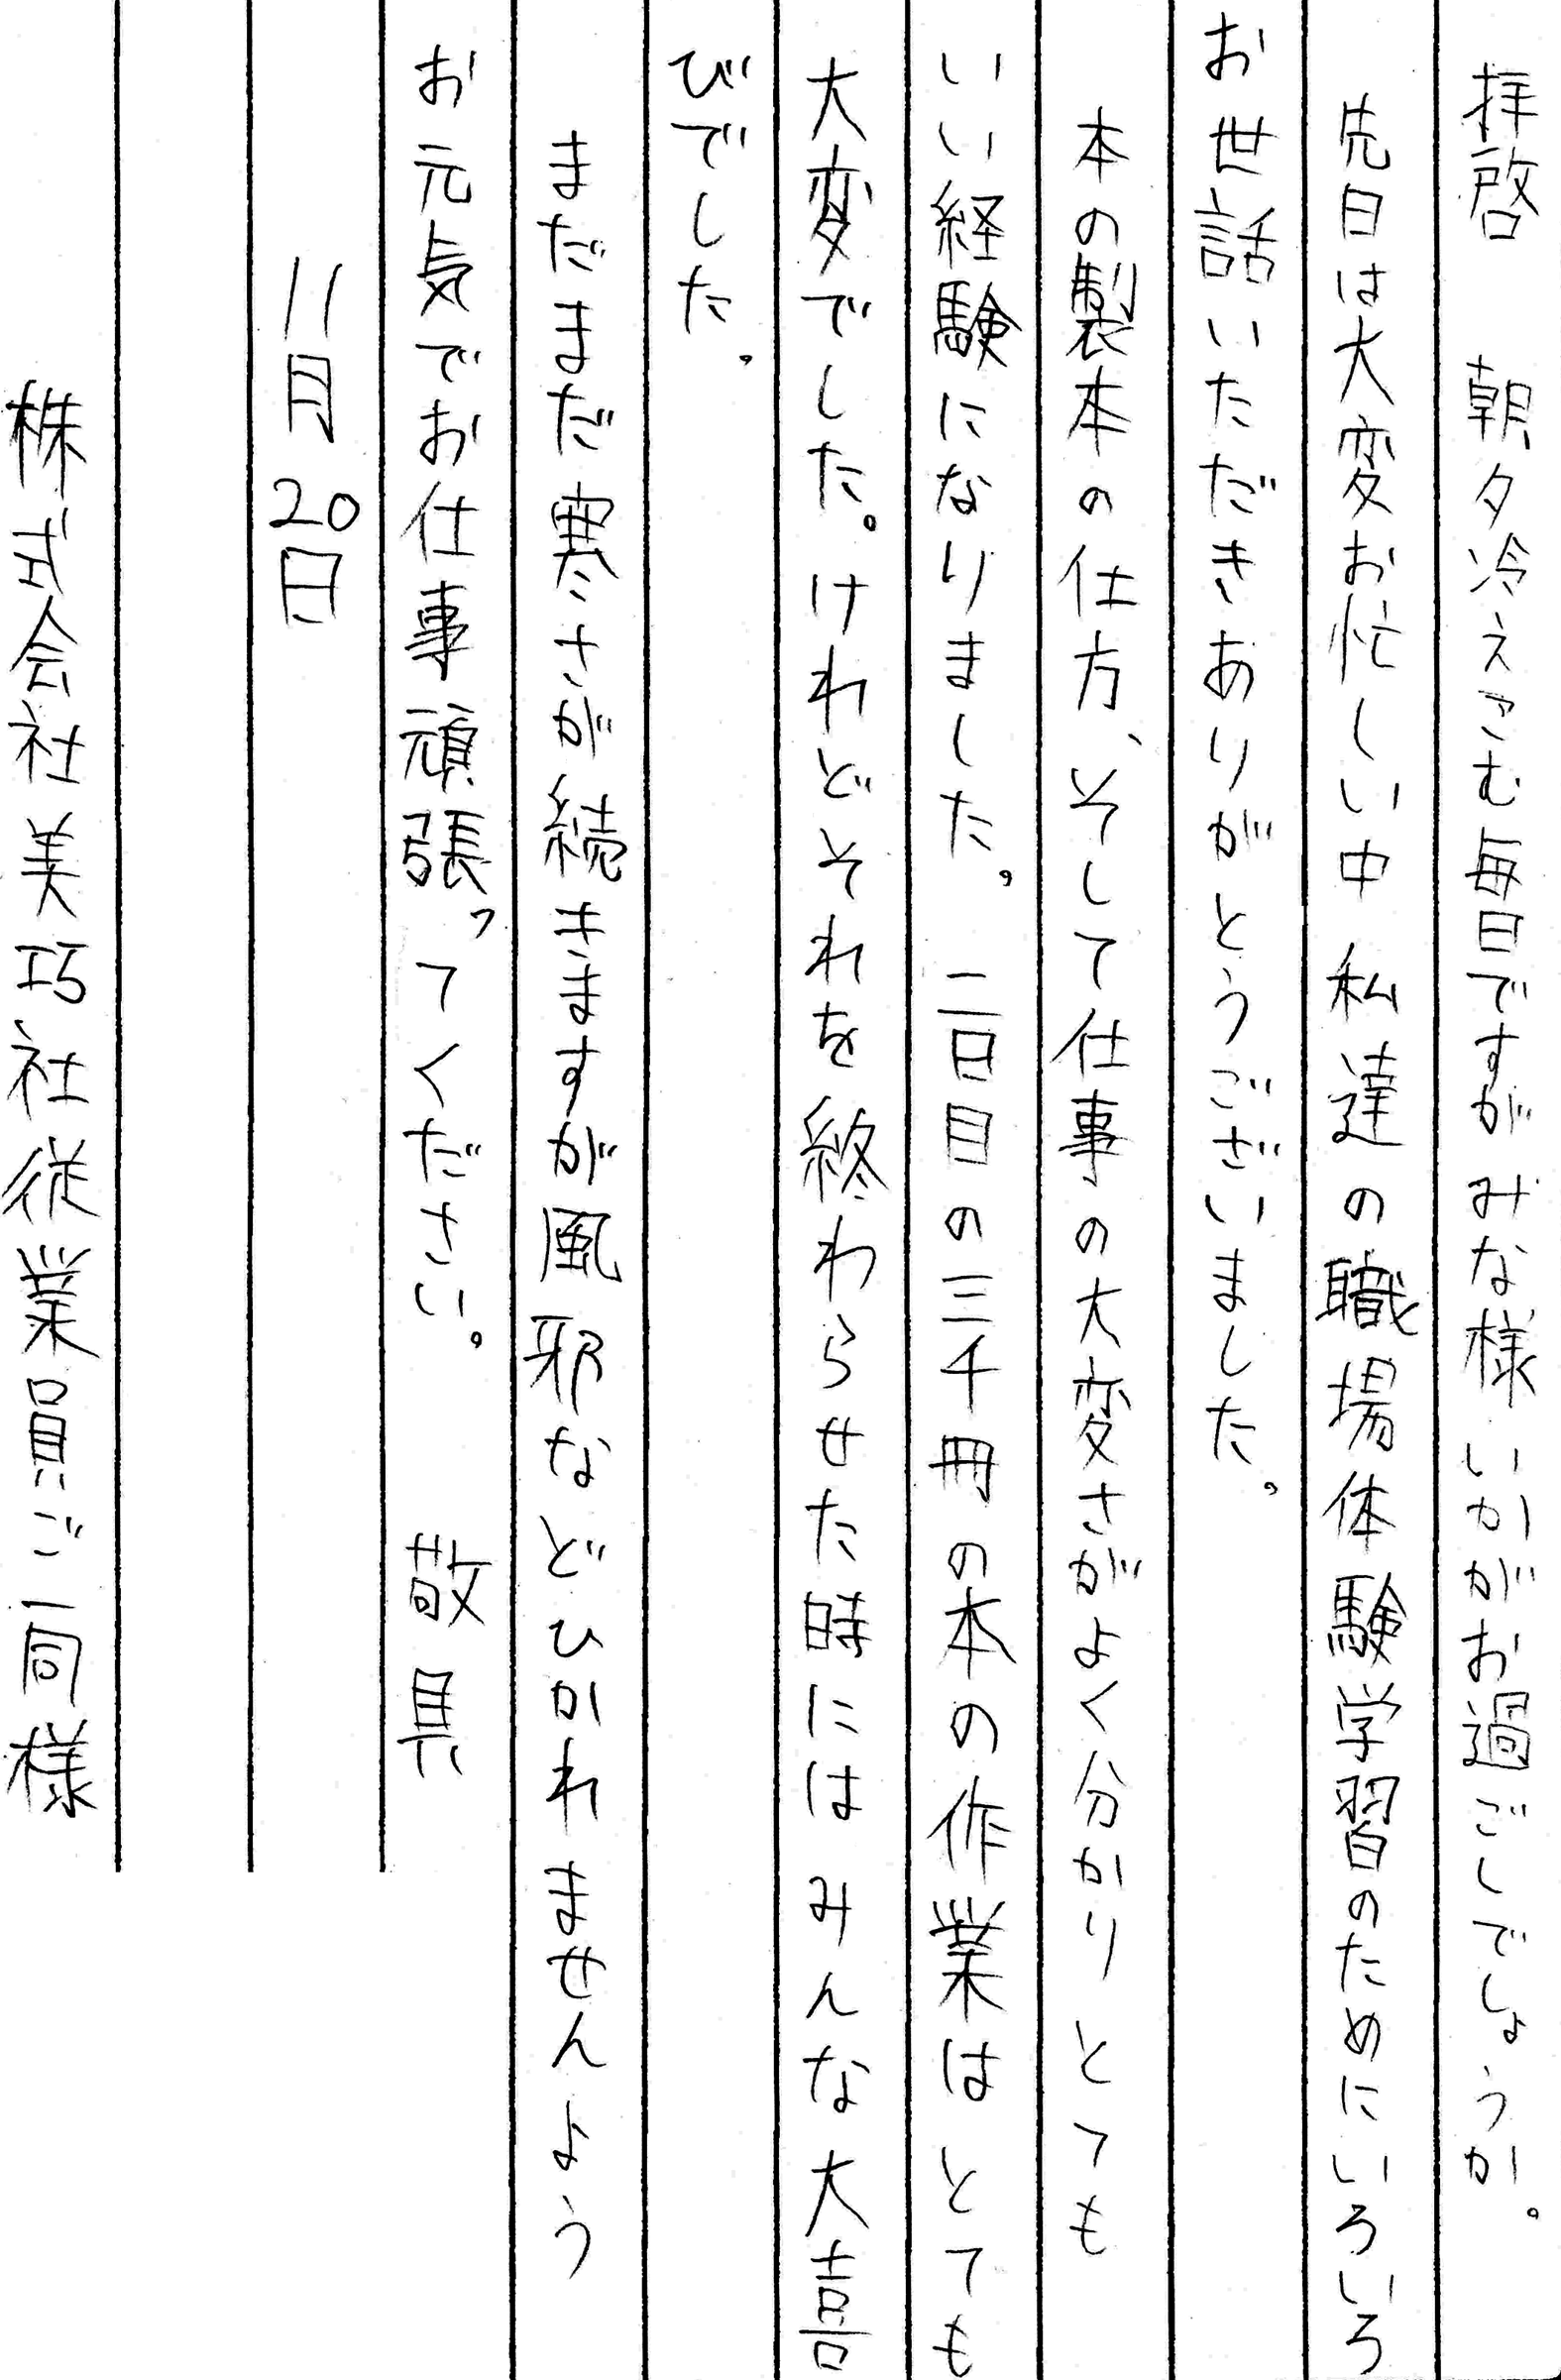 拝啓　朝夕冷えこむ毎日ですがみな様いかがお過ごしでしょうか。
先日は大変お忙しい中私達の職場体験学習のためにいろいろ
お世話いただきありがとうございました。
本の製本の仕方、そして仕事の大変さがよく分かりとても
いい経験になりました。二日目の三千冊の本の作業はとても
大変でした。けれどそれを終わらせた時にはみんな大喜
びでした。
まだまだ寒さが続きますが風邪などひかれませんよう
お元気でお仕事頑張ってください。　敬具
11月20日
株式会社美巧社従業員ご一同様